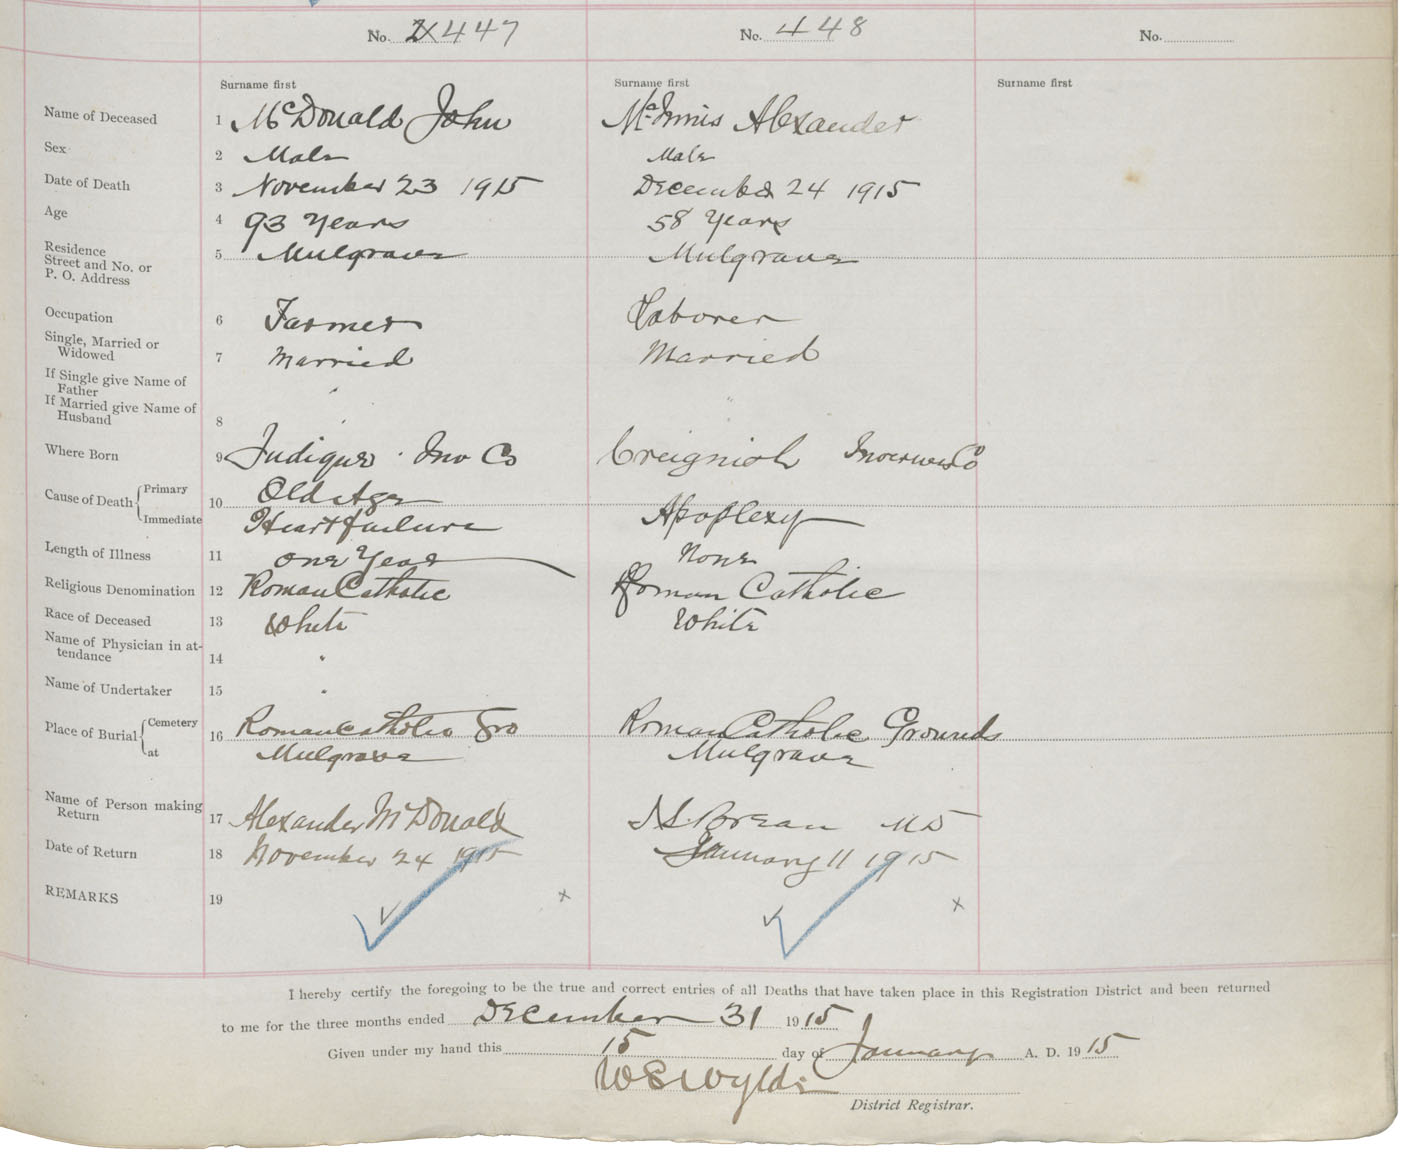 No. 447 No. 448 No.
Surname first Surname first Surname first
Name of Deceased 1 McDonald John McInnis Alexander
Sex 2 Male Male
Date of Death 3 November 23 1915 December 24 1915
Age 4 93 Years 58 Years
Residence
Street and No. or
P. O. Address 5 Mulgrave Mulgrave
Occupation 6 Farmer Laborer
Single, Married or
Widowed 7 Married Married
If Single give Name of
Father " "
If Married give Name of
Husband 8
Where Born 9 Judique Inv Co Creignish Inverness Co
Cause of Death { Primary 10 Old Age
Immediate Heart failure Apoplexy
Length of Illness 11 one Year None
Religious Denomination 12 Roman Catholic Roman Catholic
Race of Deceased 13 White White
Name of Physician in at-
tendance 14 "
Name of Undertaker 15 "
Place of Burial { Cemetery 16 Roman Catholic Gro Roman Catholic Grounds
at Mulgrave Mulgrave
Name of Person making
Return 17 Alexander McDonald MD
Date of Return 18 November 24 1915 January 11 1915
REMARKS 19 x x
I hereby certify the foregoing to be the true and correct entries of all Deaths that have taken place in this Registration District and been returned
to me for the three months ended December 31 1915
Given under my hand this 15 day of January A. D. 1915
W E Wylde
District Registrar.